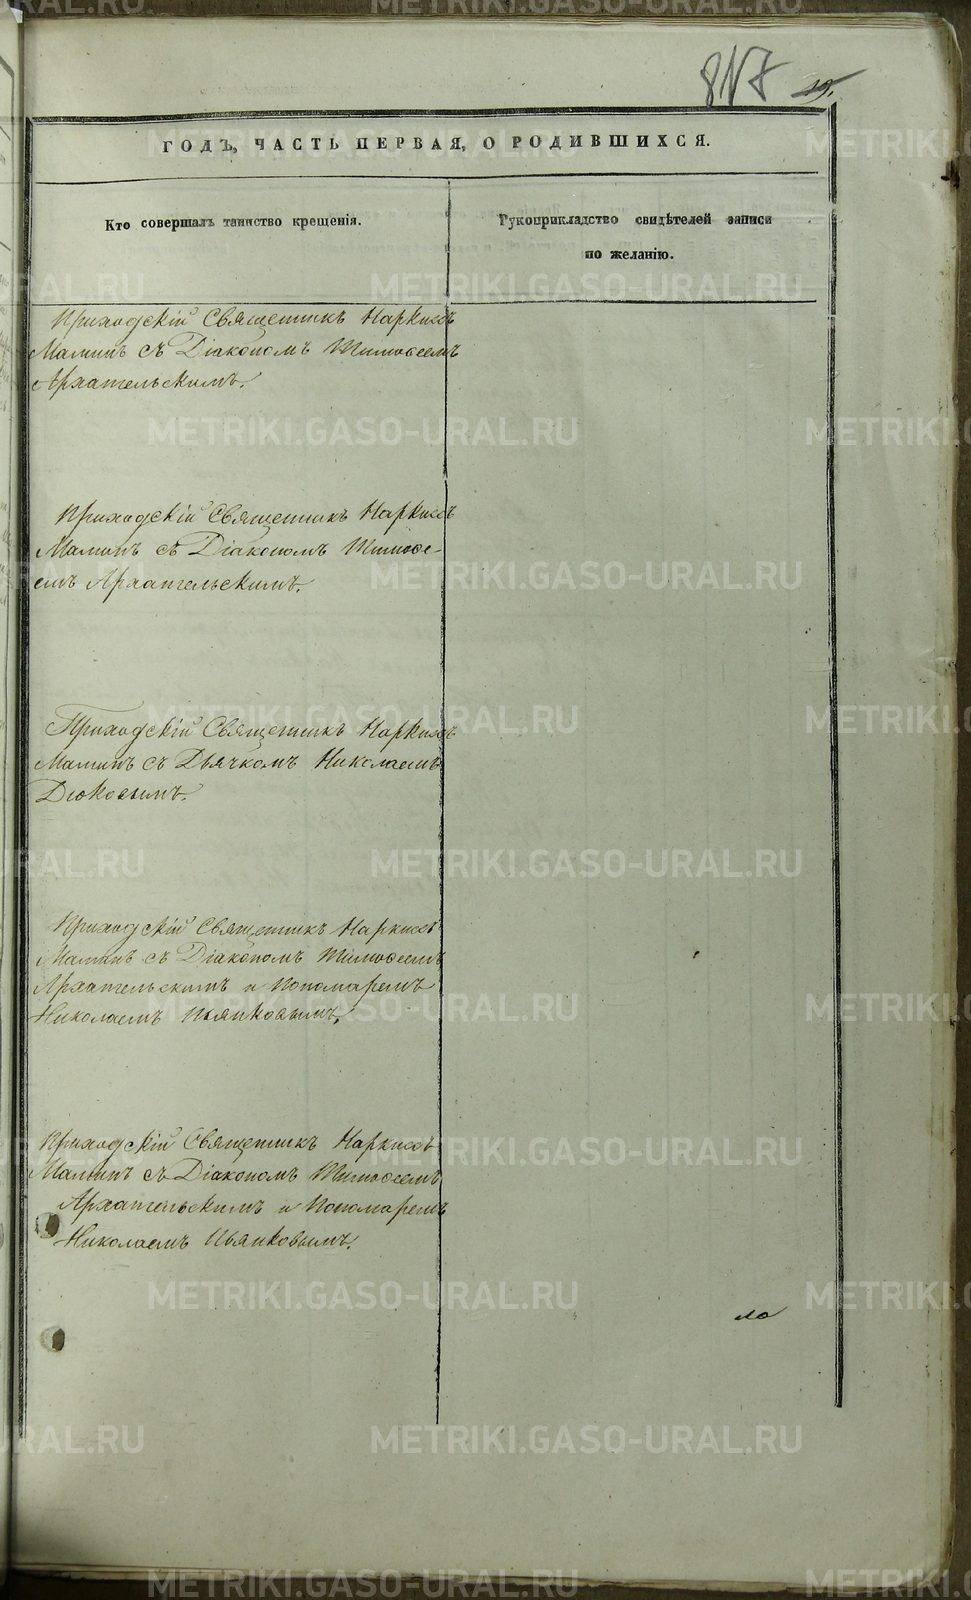 817 19.
ГОДЪ, ЧАСТЬ ПЕРВАЯ, О РОДИВШИХСЯ.
Кто совершалъ таинство крещенія.
Рукоприкладство свидѣтелей записи
по желанію.
Приходскій Священникъ Наркиссъ
Маминъ съ Діакономъ Тимоѳеемъ
Архангельскимъ.
Приходскій Священникъ Наркиссъ
Маминъ съ Діакономъ Тимоѳе-
емъ Архангельскимъ.
Приходскій Священникъ Наркиссъ
Маминъ съ Дьячкомъ Николаемъ
Дюковымъ.
Приходскій Священникъ Наркиссъ
Маминъ съ Діакономъ Тимоѳеемъ
Архангельскимъ и Пономаремъ
Николаемъ Пьянковымъ.
Приходскій Священникъ Наркиссъ
Маминъ съ Діакономъ Тимоѳеемъ
Архангельскимъ и Пономаремъ
Николаемъ Пьянковымъ.
ло
METRIKI.GASO-URAL.RU